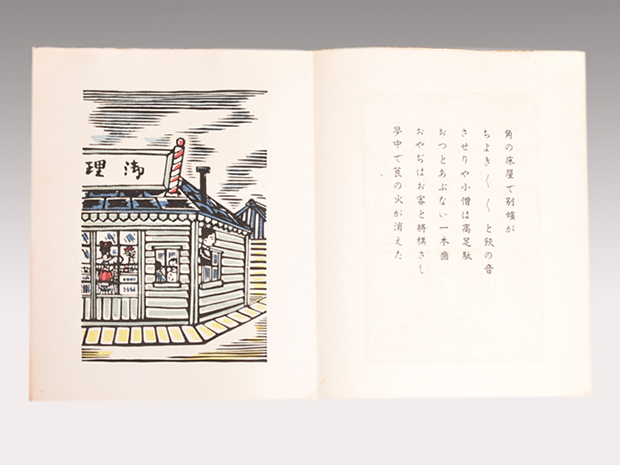 角の床屋で別嬪が
ちよき〱〱と鋏の音
させりや小僧は高足駄
おつとあぶない一本歯
おやぢはお客と将棋さし
夢中で莨の火が消えた
御理